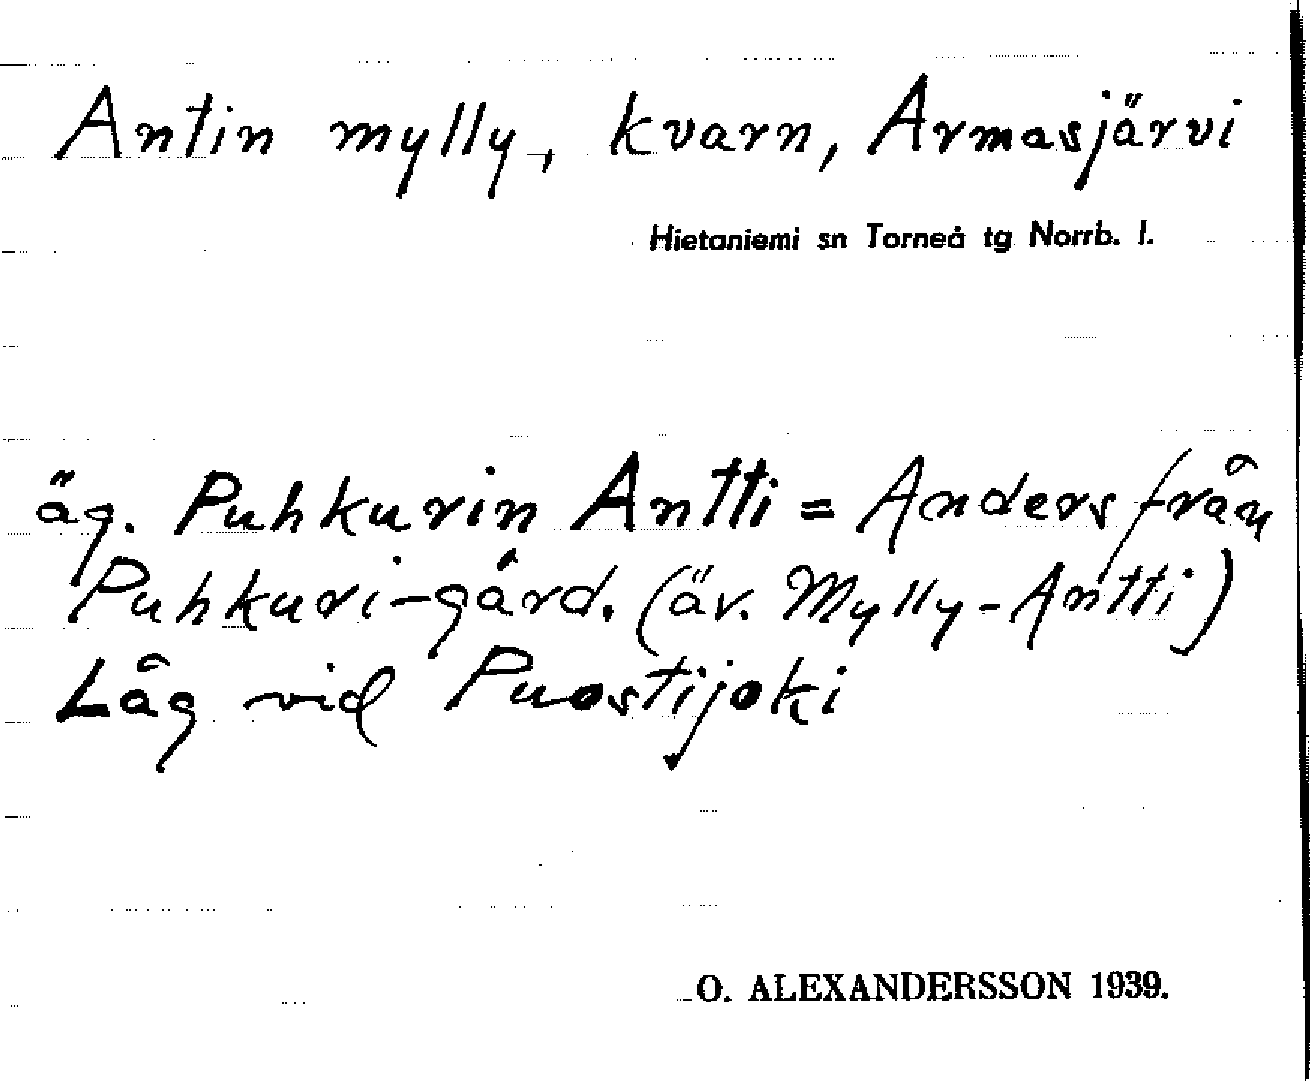 Antin mylly, kvarn, Armasjärvi
Hietaniemi sn Torneå tg Norrb. l.
äg. Puhkurin Antti = Anders från
Puhkuri-gård. (äv. Mylly-Antti)
Låg vid Puostijoki
O. ALEXANDERSSON 1939.